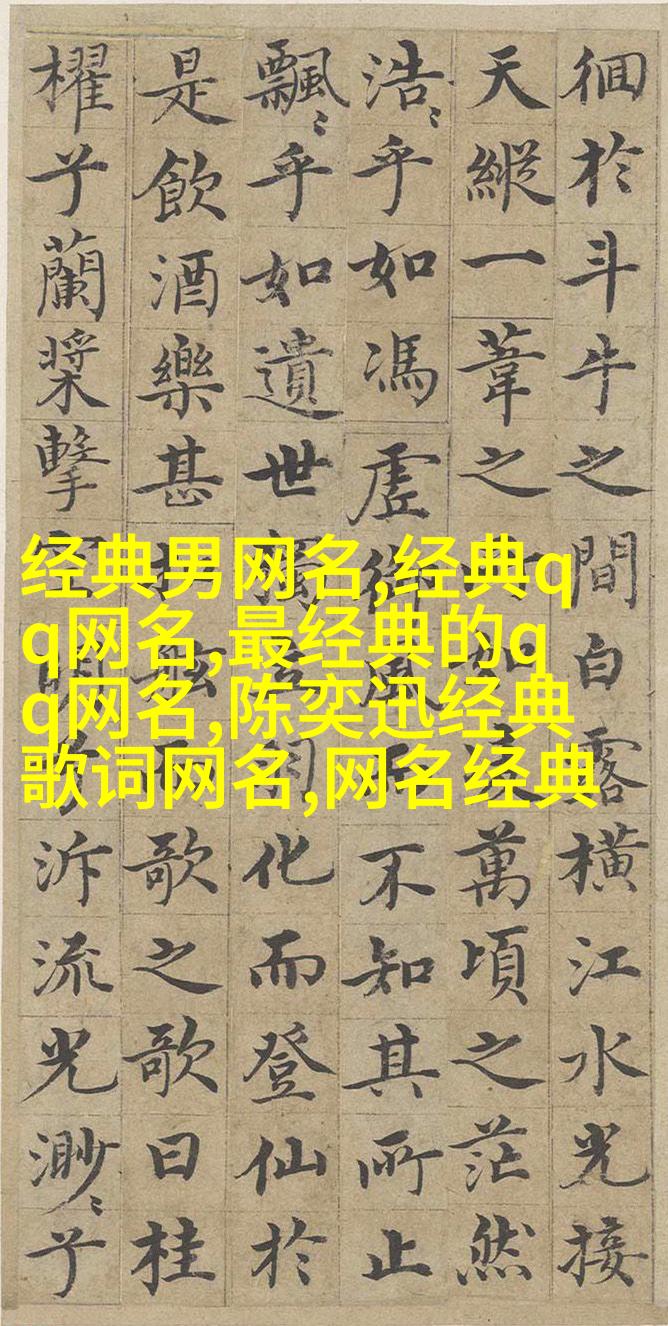 徊於斗牛之間白露橫江水光接
天縱一葦之如凌萬頃之茫然
浩〻乎如馮虛御風而不知其所止
飄〻乎如遺世獨羽化而登仙於
是飲酒樂甚舷而歌之歌曰桂
櫂兮蘭槳擊泝流光渺〻兮
经典男网名,经典q
q网名,最经典的q
q网名,陈奕迅经典
歌词网名,网名经典